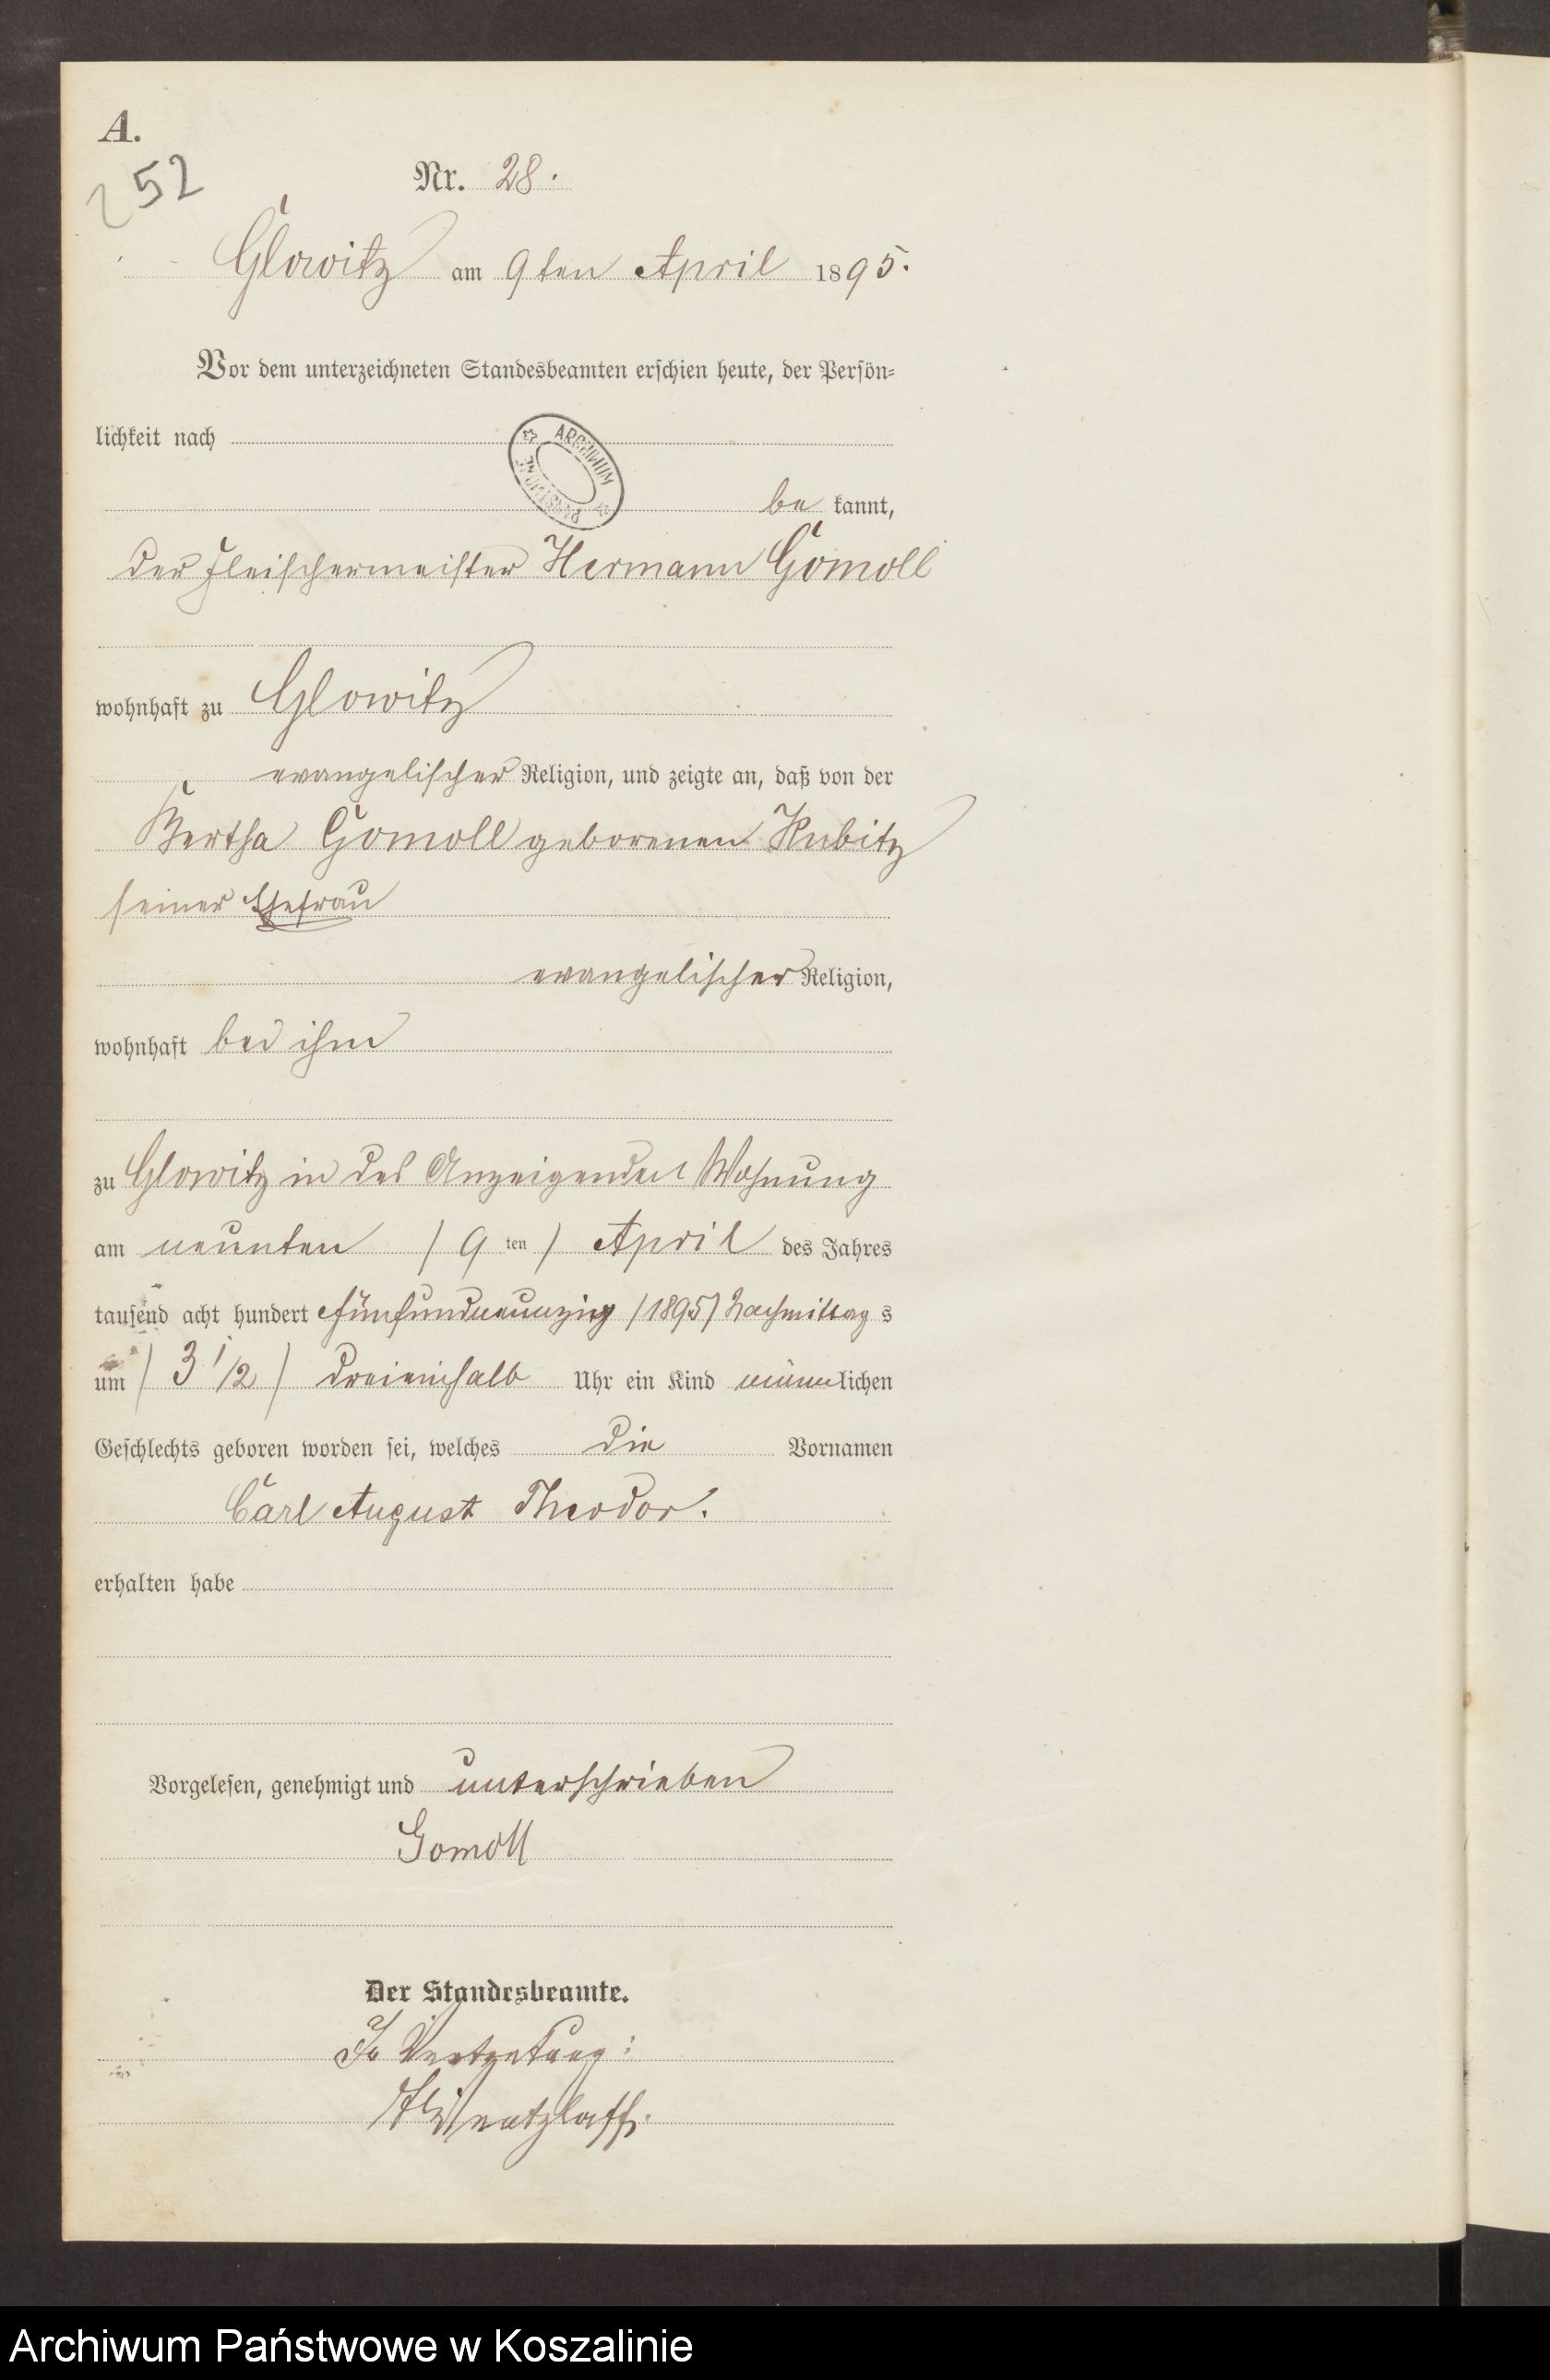 A.
252
Nr. 28.
Glowitz am 9ten April 1895.
Vor dem unterzeichneten Standesbeamten erschien heute, der Persön-
lichkeit nach
ARCHIWUM PAŃSTWOWE
be kannt,
der Fleischermeister Hermann Gomoll
wohnhaft zu Glowitz
evangelischer Religion, und zeigte an, daß von der
Bertha Gomoll geborenen Kubitz
seiner Ehefrau
evangelischer Religion,
wohnhaft bei ihm
zu Glowitz in des Anzeigenden Wohnung
am neunten / 9 ten / April des Jahres
tausend acht hundert fünfundneunzig /1895/ Nachmittag s
um / 3 1/2 / dreieinhalb Uhr ein Kind männlichen
Geschlechts geboren worden sei, welches die Vornamen
Carl August Theodor.
erhalten habe
Vorgelesen, genehmigt und unterschrieben
Gomoll
Der Standesbeamte.
In Vertretung:
Archiwum Państwowe w Koszalinie